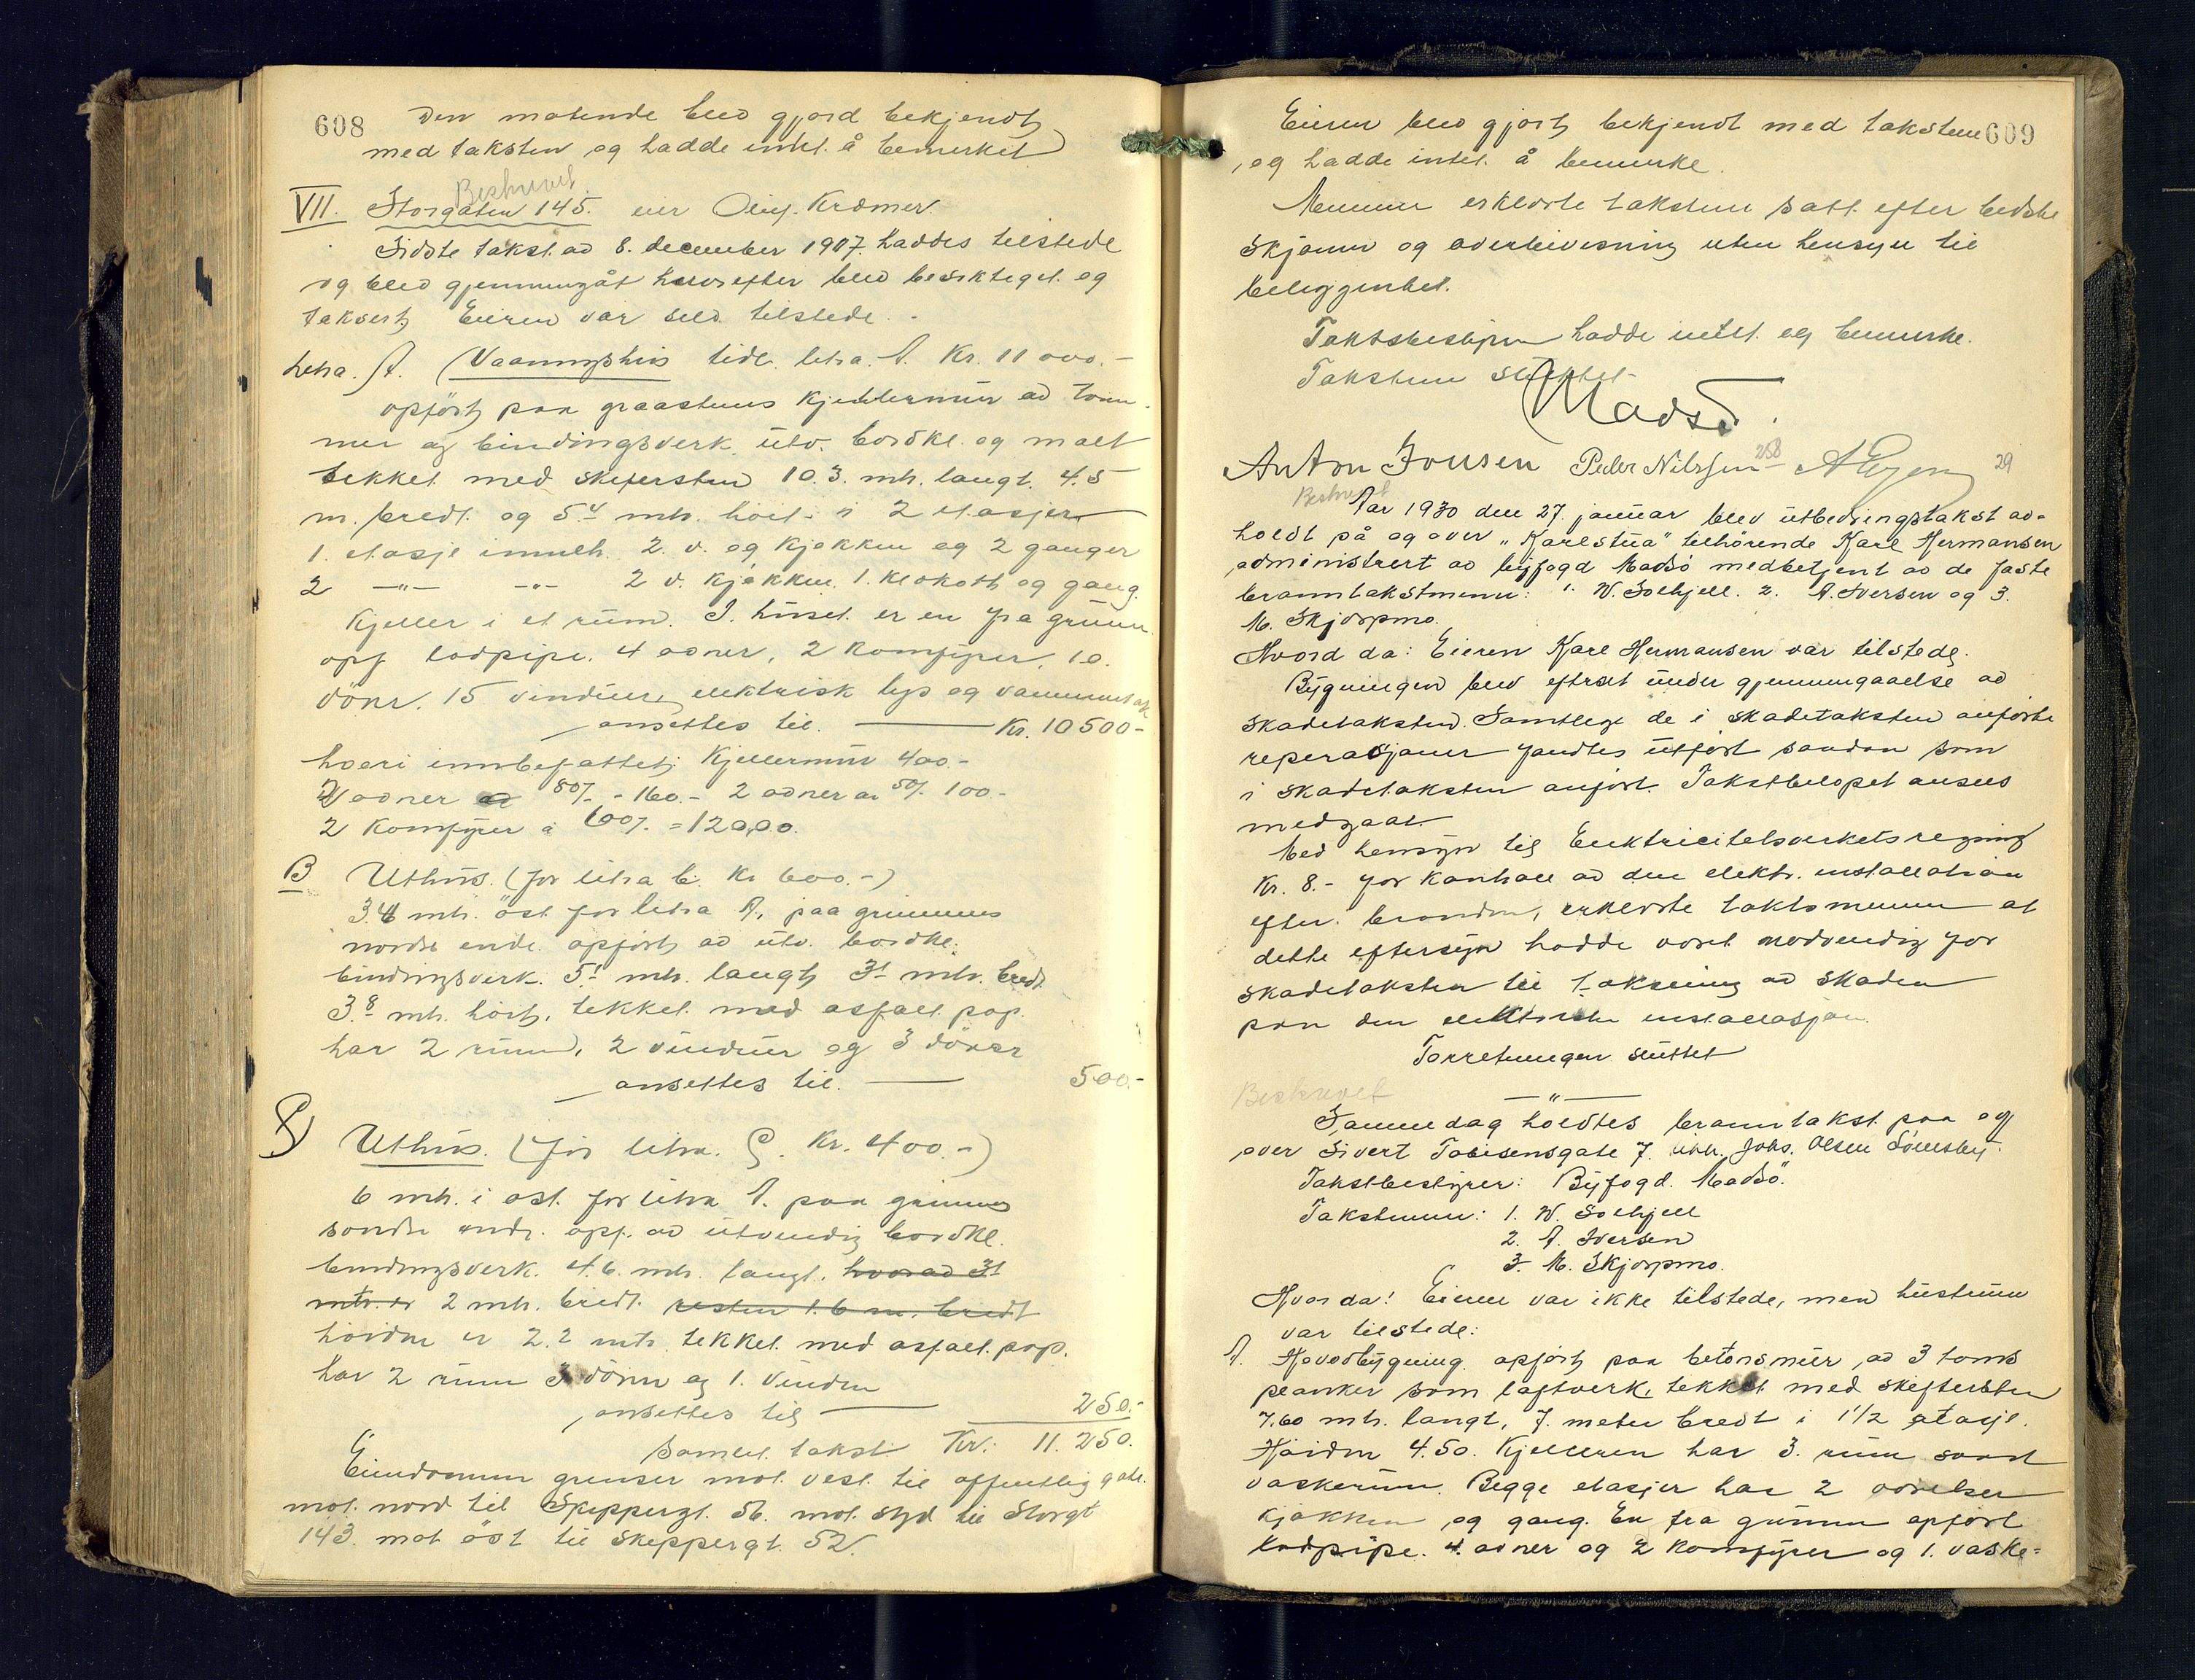 608
Den møtende blev gjord bekjendt
med taksten og hadde intet å bemerket
Beskrevet
VII. Storgaten 145. eier Oluf Kræmer
Sidste takst av 8. december 1917. haddes tilstede
og blev gjennemgåt hvorefter blev besiktiget og
taksert Eieren var selv tilstede.
Letra. A. (Vaaningshus tidl. letra. A. Kr. 11 000.-
opført paa graastens kjeldermur av tøm-
mer og bindingsverk utv. bordkl. og malt
tekket med skifersten 10.3. mtr. langt. 4.5
m. bredt. og 5.4 mtr. höit i 2 etasjer
1. etasje inneh. 2. v. og kjøkken og 2 ganger
2 -"- -"- 2 v. kjøkken 1. klokott og gang.
Kjeller i et rum. I huset er en fra grunn
opf lodpipe. 4 ovner, 2 komfyrer, 10.
dörer. 15 vinduer, elektrisk lys og
ansettes til. Kr. 10500-
hvori innbefattet: Kjellermur 400.-
2 ovner 80/- - 160.- 2 ovner a 50/. 100.-
2 komfyrer à 60/. = 120,00.
B Uthus. (för litra b. Kr 600.-)
3.4 mtr. öst for litra A, paa grunnens
nordre ende opfört av utv. bordkl.
bindingsverk. 5.1 mtr. langt 3.1 mtr. bredt
3.8 mtr. höit, tekket med asfalt pap.
har 2 rum, 2 vinduer og 3 dörer
ansettes til. 500.-
C) Uthus. (för litra. C. Kr. 400.-)
6 mtr. i øst for litra A. paa grunnens
søndre ende. opf. av utvendig bordkl.
bindingsverk. 4.6. mtr. langt, hvorav 3.1
mtr. er 2 mtr. bredt. resten 1.6 m. bredt
höiden er 2.2 mtr. tekket med asfalt. pap.
har 2 rum 3 dörer og 1. vindu
ansettes til 250.-
Samlet takst Kr: 11.250.
Eiendommen grenser mot vest til offentlig gate.
mot nord til Skippergt. 56. mot syd til Storgt
143. mot öst til Skippergt. 52.
609
Eieren blev gjort bekjendt med taksten
og hadde intet å bemerke.
Mennene erklærte takstene satt efter bedste
skjønn og overbevisning uten hensyn til
beliggenhet.
Takstbestyren hadde intet og bemerke.
Taksten sluttet
Madsö.
Anton Jonsen Peder Nilssen 258 29
Beskrevet
Aar 1930 den 27. januar blev utbedringstakst av-
holdt på og over "Karlstua" tilhörende Karl Hermansen
administrert av byfogd Madsö medbetjent av de faste
branntakstmenn: 1. W. Solhjell. 2. A. Iversen og 3.
M. Skjørpmo.
Hvord da: Eieren Karl Hermansen var tilstede.
Bygningen blev eftrset under gjennemgaaelse av
skadetaksten. Samtlige de i skadetaksten anførte
reperasjoner fandtes utført saadan som
i skadetaksten anført. Takstbeløpet ansees
medgaat.
Med hensyn til Elektricitetsverkets regning
Kr. 8.- for kontroll av den elektr. installation
efter branden, erklærte takstmennene at
dette eftersyn hadde været nødvendig for
skadetaksten til taksering av skaden
paa den elektriske installasjon.
Forretningen sluttet
Beskrevet
—"—
Samme dag holdtes branntakst paa og
over Sivert Tobisensgate 7. tilh. Johs. Olsen
Takstbestyrer: Byfogd. Madsö.
Takstmenn: 1. W. Solhjell
2. A. Iversen
3. M. Skjørpmo.
Hvor da! Eieren var ikke tilstede, men hustruen
var tilstede:
A. Hovedbygning opfört paa betonsmur, av 3 toms
planker som laftverk, tekket med skifersten
7.60 mtr. langt, 7. meter bredt i 1 1/2 etasje.
Høiden 4.50. Kjelleren har 3. rum samt
vaskerum. Begge etasjer har 2 værelser
kjøkken og gang. En fra grunnen opført
lodpipe. 4. ovner og 2 komfyrer og 1. vaske=